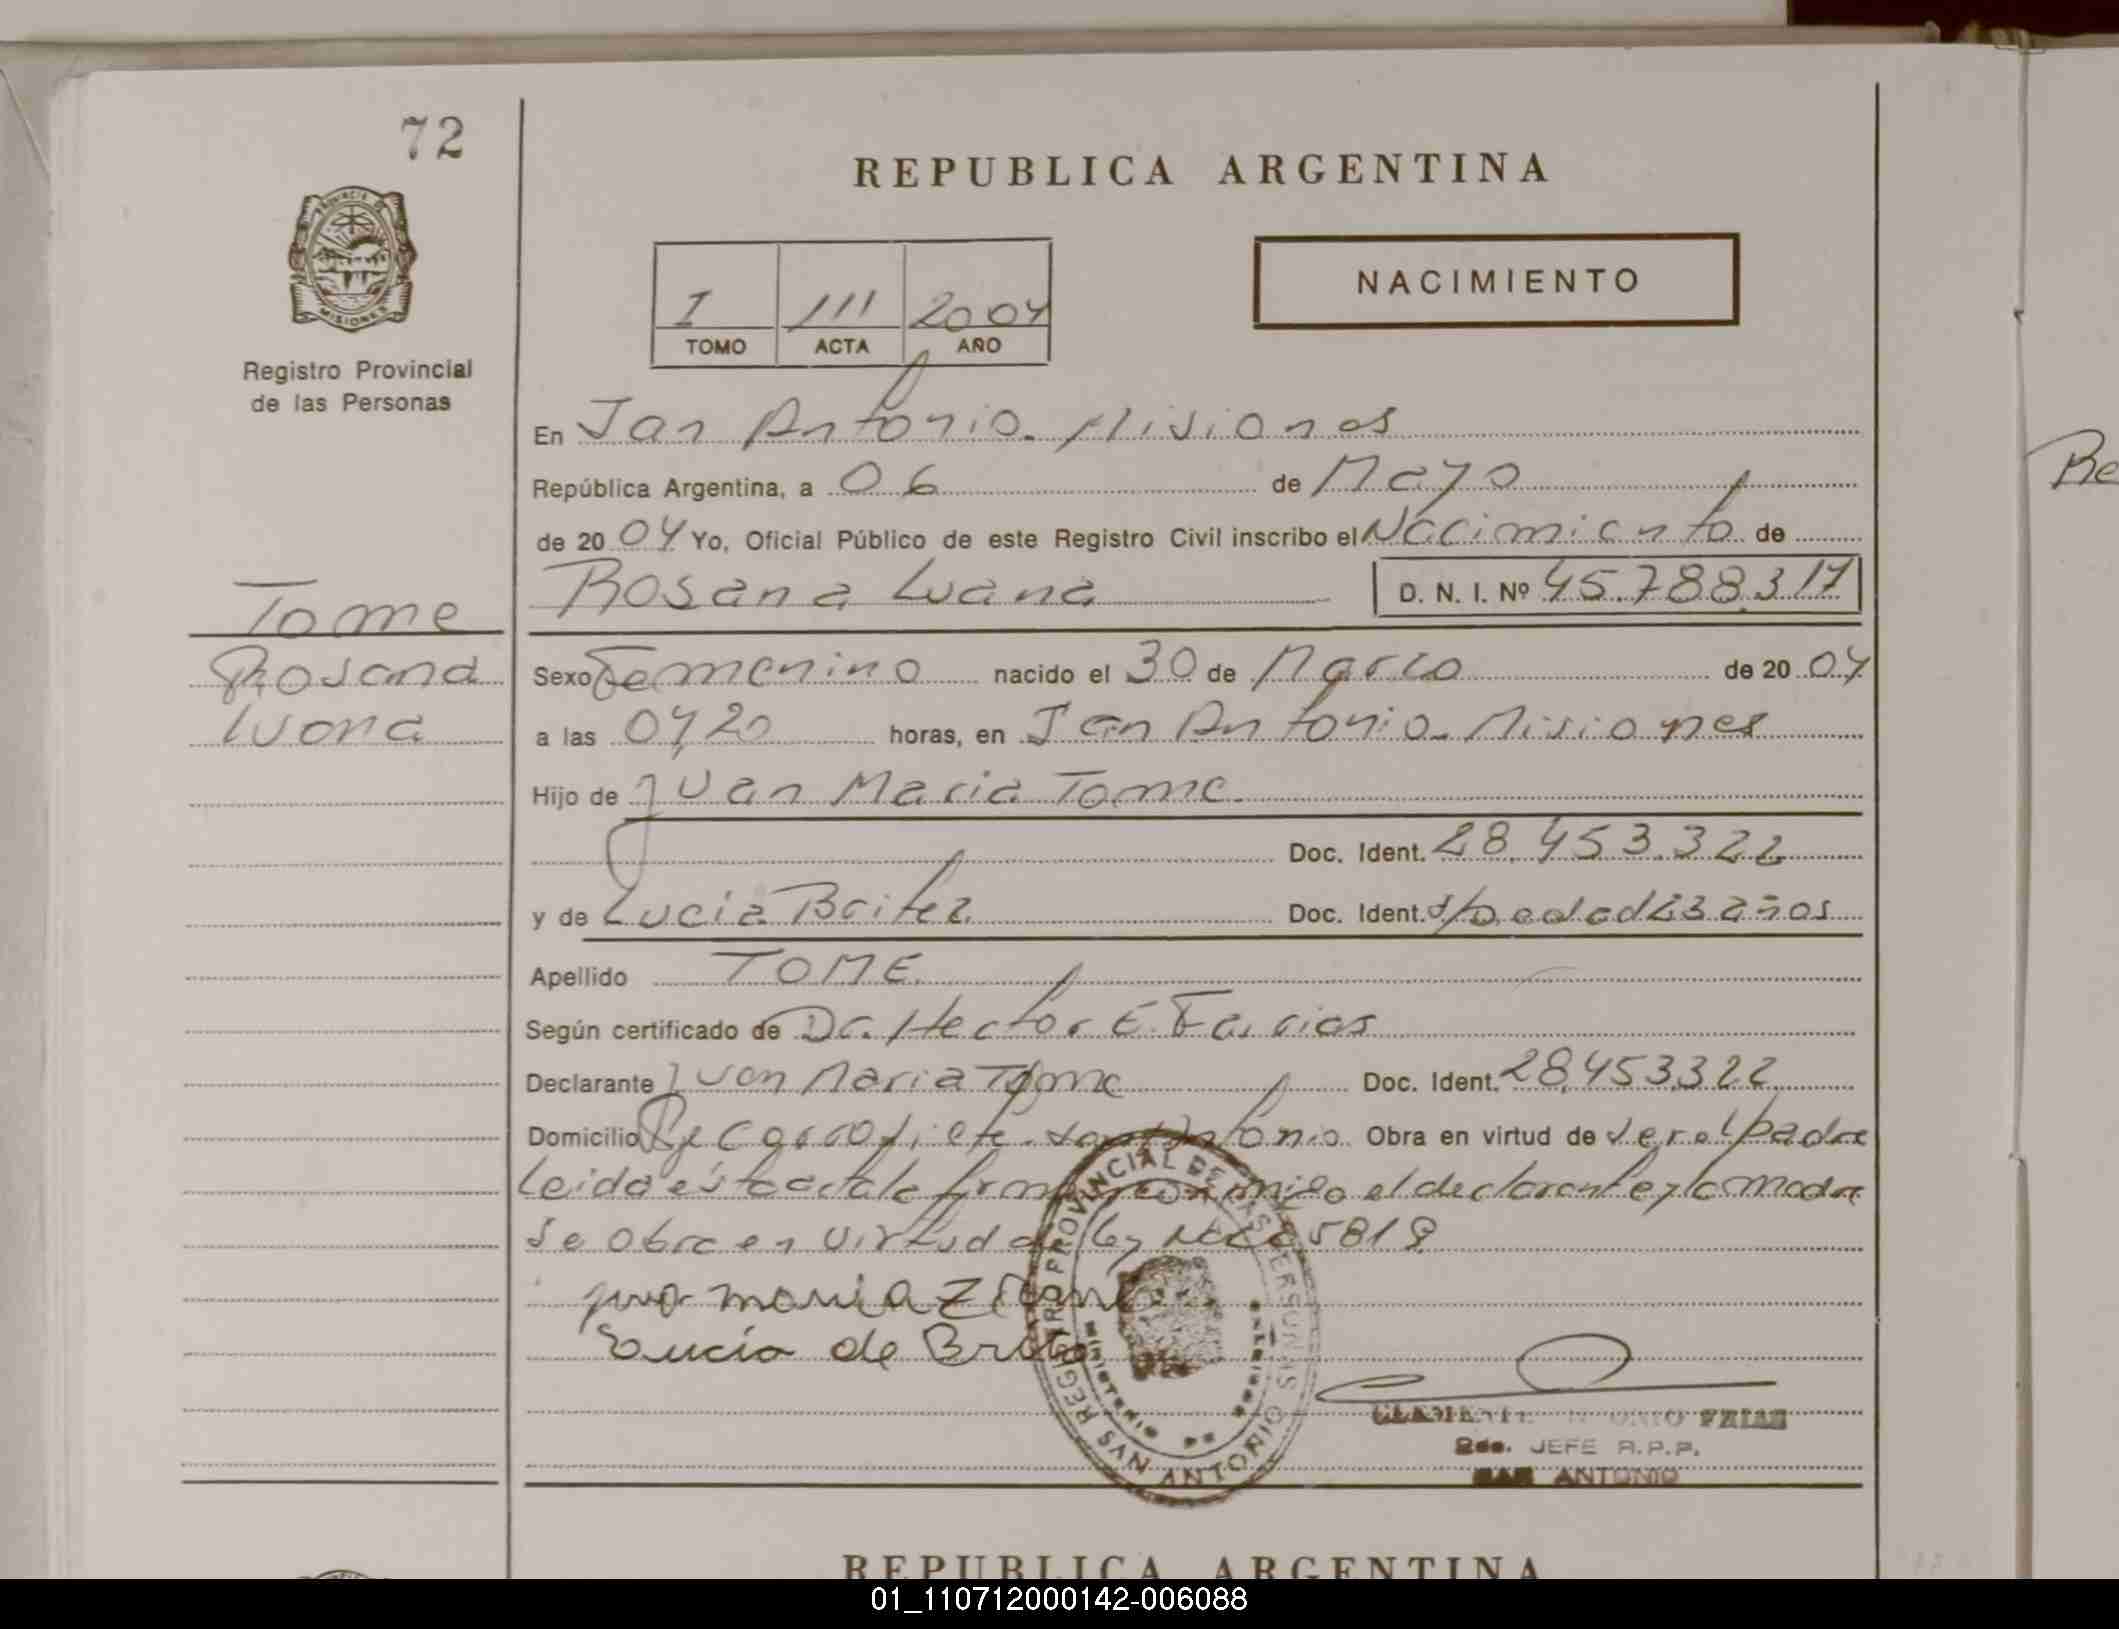 72
REPUBLICA ARGENTINA
PROVINCIA DE
MISIONES
NACIMIENTO
I 111 2004
TOMO ACTA AÑO
Registro Provincial
de las Personas
En San Antonio. Misiones
República Argentina, a 06 de Mayo
de 2004 Yo, Oficial Público de este Registro Civil inscribo el Nacimiento de
Tome
Rosana Luana D. N. I. Nº 45.788.317
Rosana
Luana
Sexo Femenino nacido el 30 de Marzo de 2004
a las 04,20 horas, en San Antonio. Misiones
Hijo de Juan Maria Tome
Doc. Ident. 28.453.322
y de Lucia Britez Doc. Ident. edad 23 años
Apellido TOME
Según certificado de Dr. Hector E. Farias
Declarante Juan Maria Tome Doc. Ident. 28.453.322
Domicilio San Antonio. Obra en virtud de ser el padre
Leida esta acta la firma conmigo el declarante y la madre
Se obra en virtud de ley 5818
maria
Lucia de
REGISTRO PROVINCIAL DE LAS PERSONAS
MINISTERIO DE
SAN ANTONIO
FRIAS
2do. JEFE R.P.P.
SAN ANTONIO
REPUBLICA ARGENTINA
01_110712000142-006088